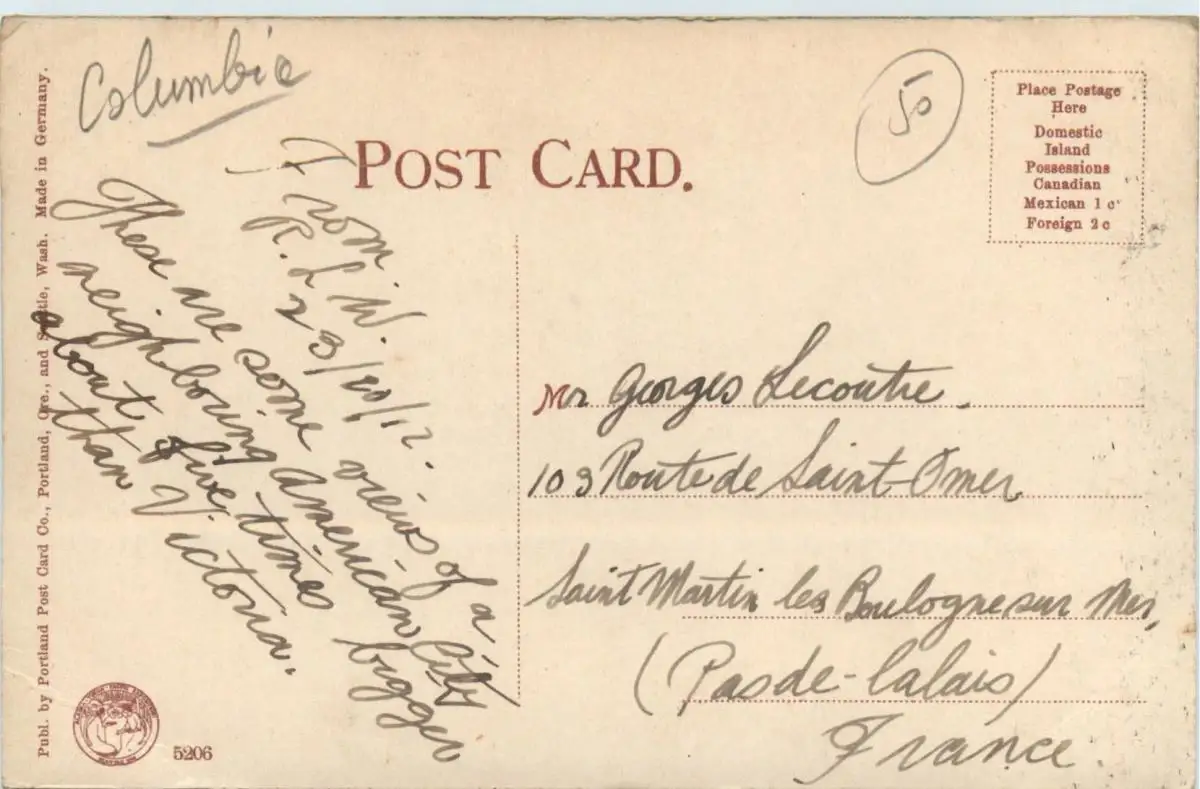 Columbia
50
Place Postage
Here
Domestic
Island
Possessions
Canadian
Mexican 1 c
Foreign 2 c
POST CARD.
From
R. L. W.
23/10/12.
These are some views of a
neighbouring american City
about five times bigger
than Victoria.
Mr Georges Lecoutre.
103 Route de Saint-Omer
Saint Martin les Boulogne sur Mer,
(Pas de-Calais)
France.
Publ. by Portland Post Card Co., Portland, Ore., and Seattle, Wash. Made in Germany.
5206